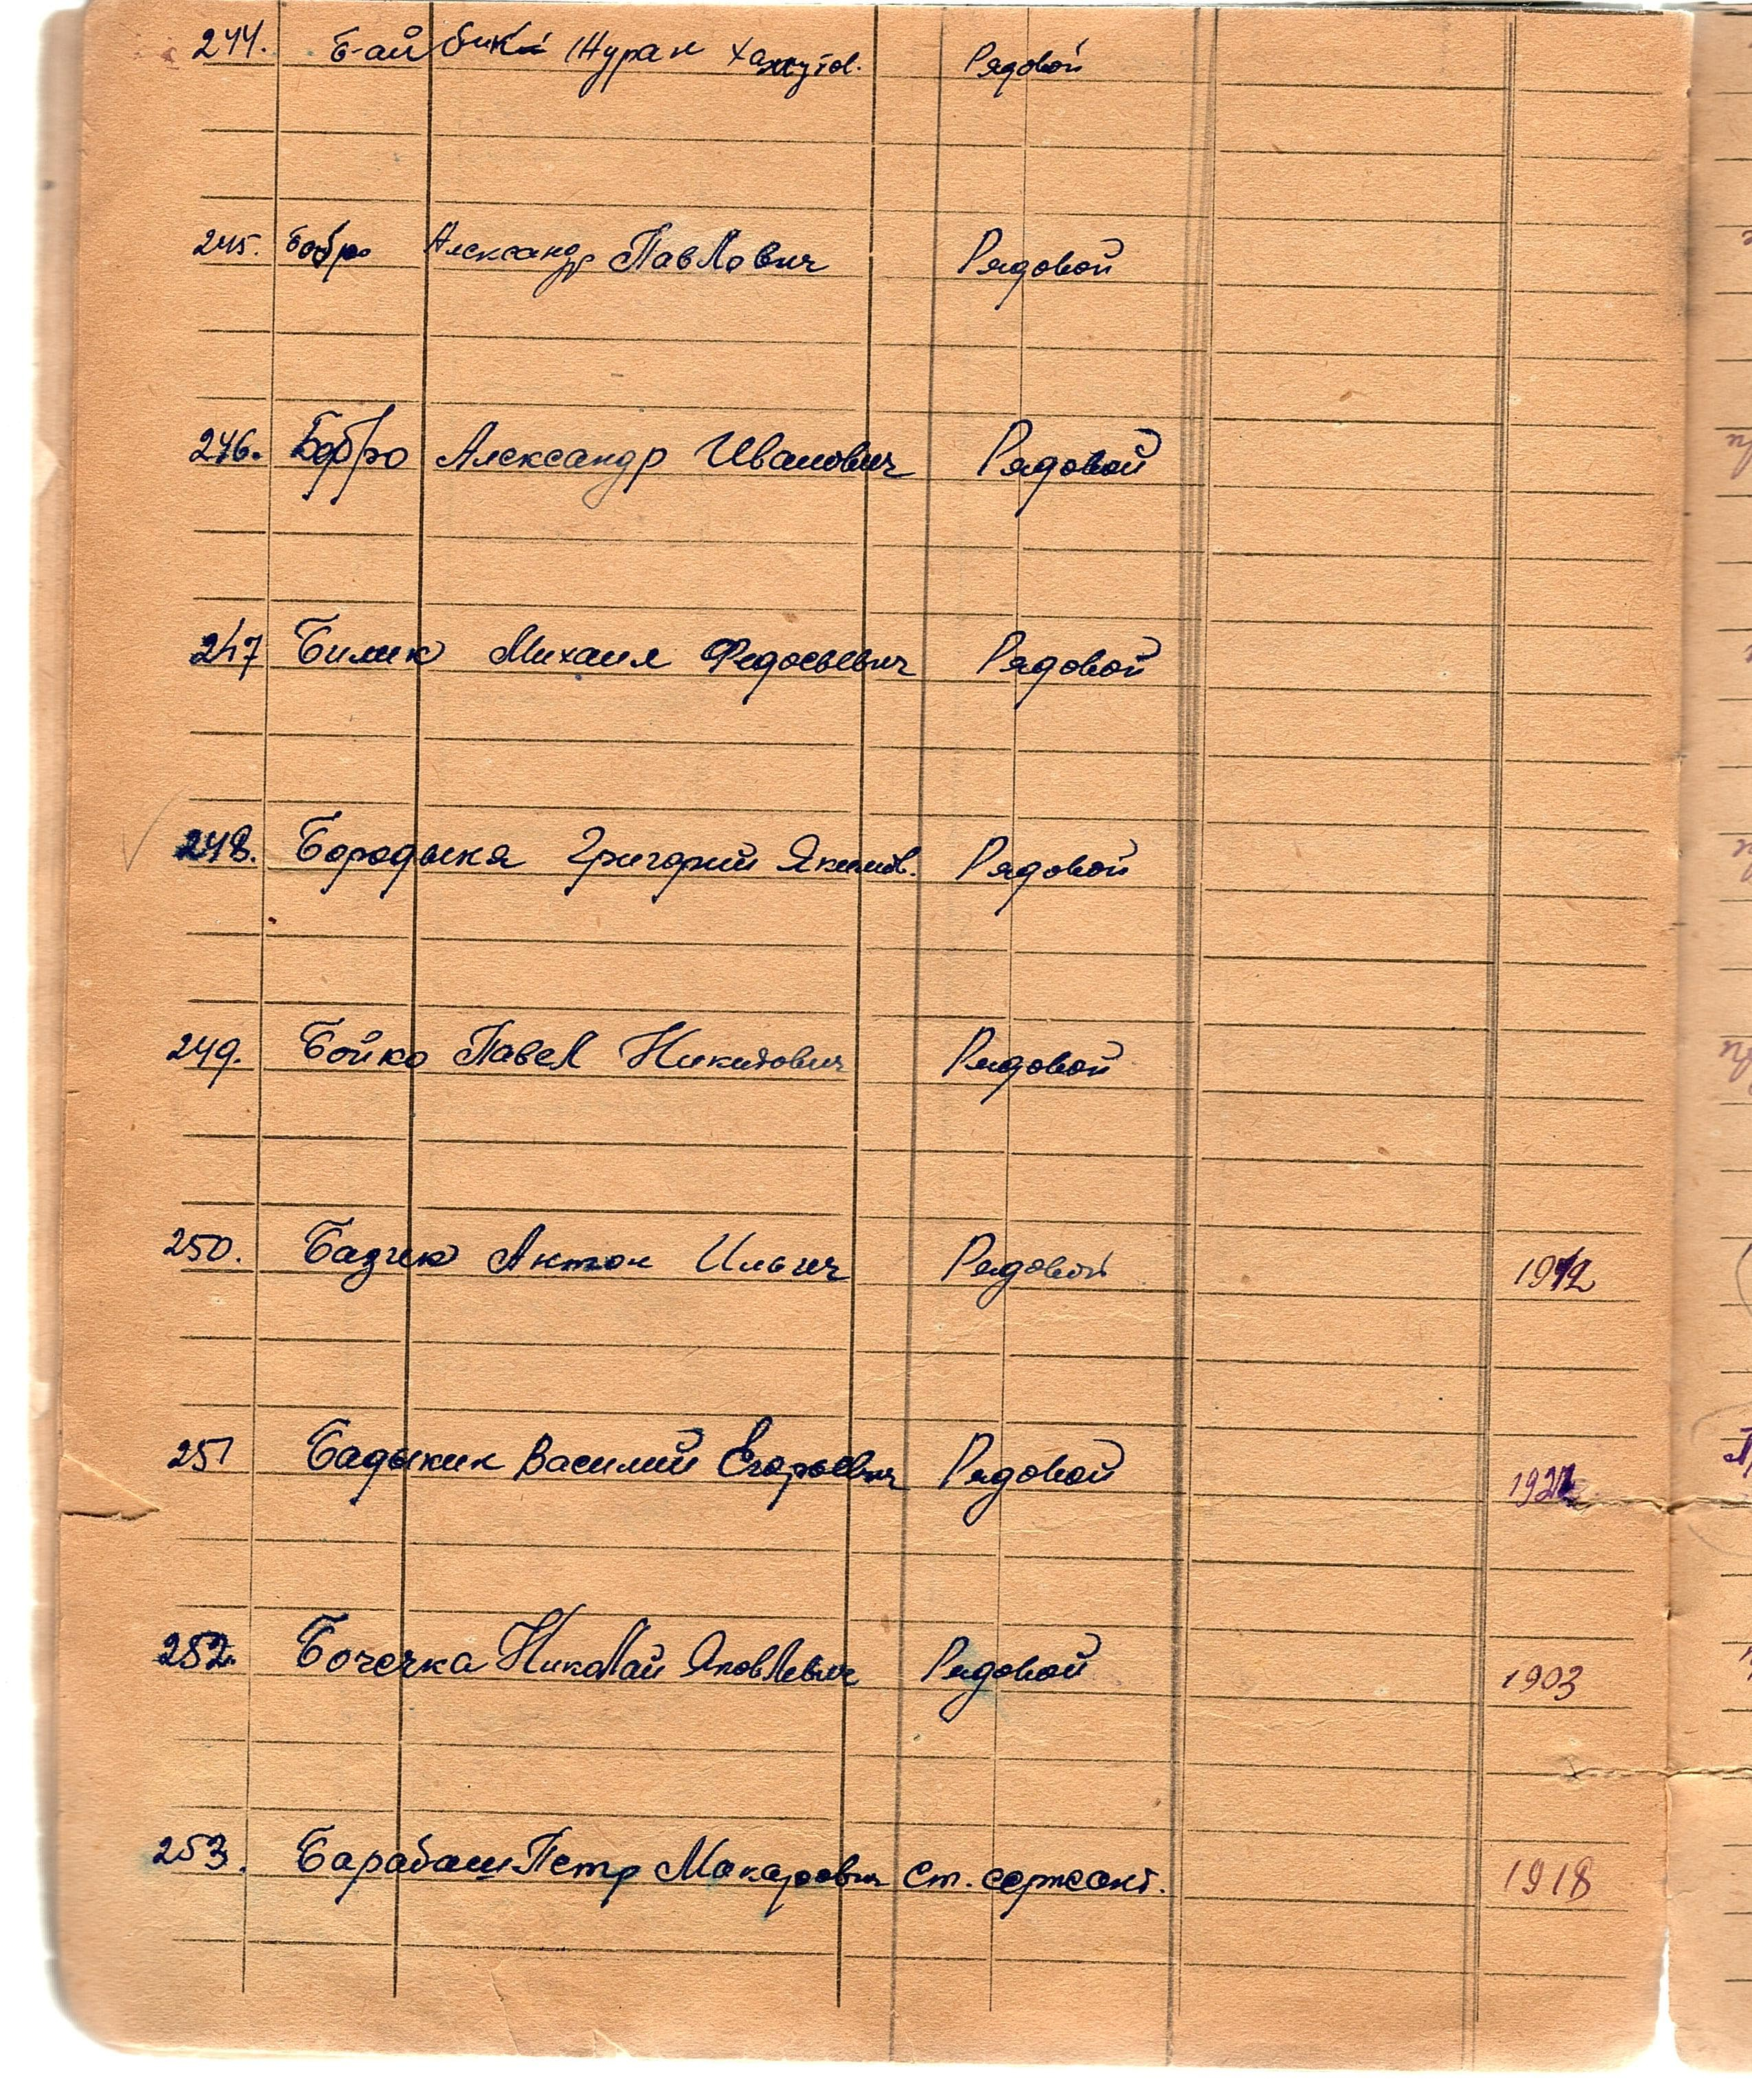 244. Байбик Нуран Рядовой
245. Бобро Александр Павлович Рядовой
246. Бобро Александр Иванович Рядовой
247 Билик Михаил Федосьевич Рядовой
248. Бородыня Григорий Якимов. Рядовой
249. Бойко Павел Никитович Рядовой
250. Антон Ильич Рядовой 1912
251 Бадыкин Василий Егорьевич Рядовой
252. Бочечка Николай Яковлевич Рядовой 1903
253. Барабаш Петр Макарович Ст. сержант. 1918